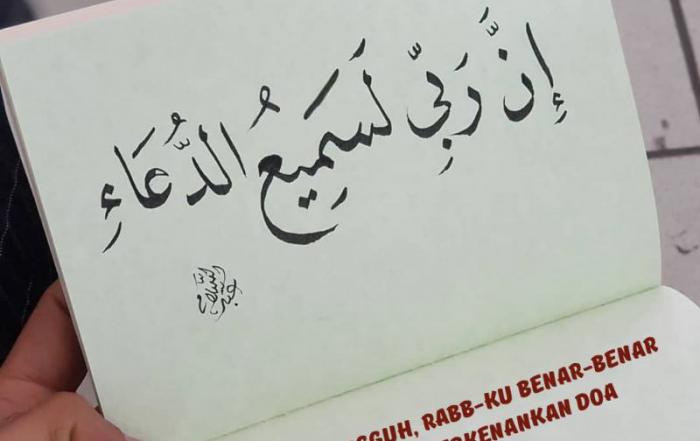 إِنَّ رَبِّي لَسَمِيعُ الدُّعَاءِ
عبد السلام
GGUH, RABB-KU BENAR-BENAR
RKENANKAN DOA